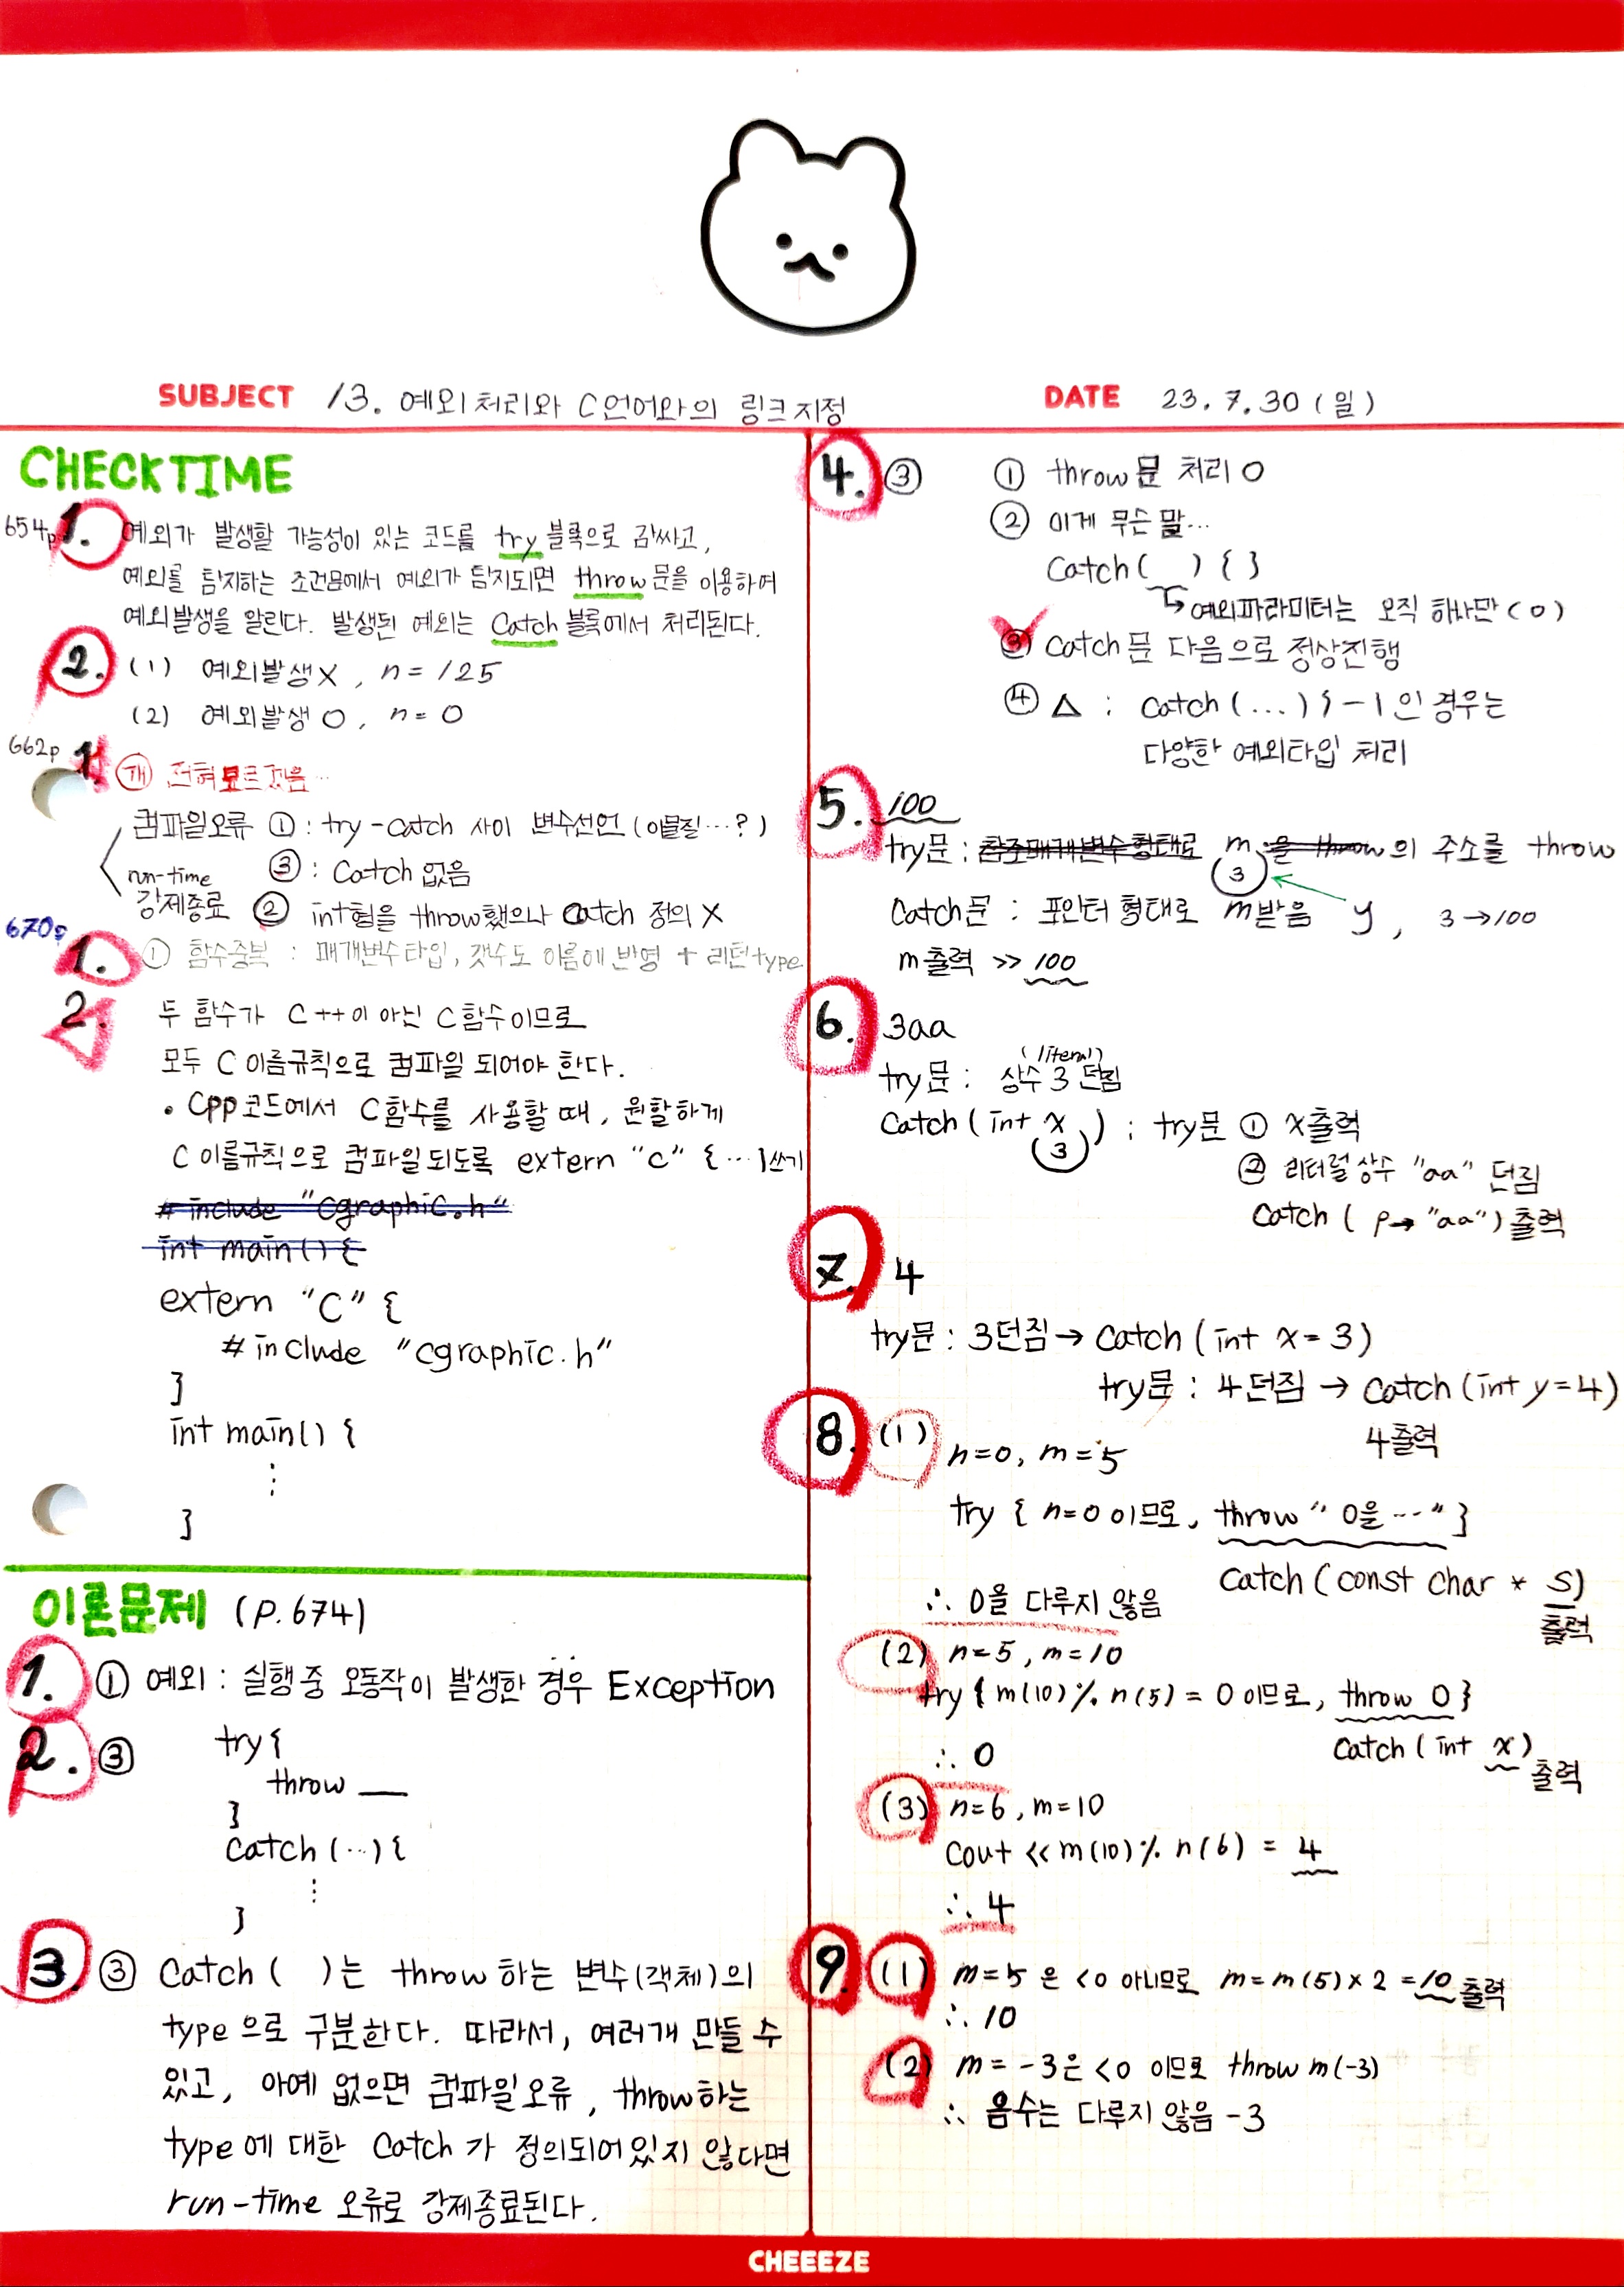 SUBJECT 13. 예외처리와 C언어와의 링크지정
DATE 23.7.30(일)
CHECKTIME
654p 1. 예외가 발생할 가능성이 있는 코드를 try 블록으로 감싸고,
예외를 탐지하는 조건문에서 예외가 탐지되면 throw문을 이용하여
예외발생을 알린다. 발생된 예외는 Catch 블록에서 처리된다.
2. (1) 예외발생X, n=125
(2) 예외발생O, n=0
662p 1. 전혀모르겠음…
컴파일오류 ①: try-catch 사이 변수선언(이물질…?)
③: Catch 없음
run-time
강제종료 ② int형을 throw했으나 Catch 정의X
670p
1. ① 함수중복 : 매개변수타입, 갯수도 이름에 반영 + 리턴type
2. 두 함수가 C++이 아닌 C함수이므로
모두 C 이름규칙으로 컴파일 되어야 한다.
• Cpp코드에서 C함수를 사용할 때, 원할하게
C 이름규칙으로 컴파일되도록 extern "C" {…}쓰기
#include "cgraphic.h"
int main() {
extern "C" {
#include "cgraphic.h"
}
int main() {
⋮
}
이론문제 (P.674)
1. ① 예외 : 실행중 오동작이 발생한 경우 Exception
2. ③ try{
throw __
}
Catch(…){
⋮
}
3. ③ Catch( )는 throw하는 변수(객체)의
type으로 구분한다. 따라서, 여러개 만들 수
있고, 아예 없으면 컴파일오류, throw하는
type에 대한 Catch가 정의되어있지 않다면
run-time 오류로 강제종료된다.
4. ③ ① throw문 처리 O
② 이게 무슨 말…
Catch( ) { }
↳ 예외파라미터는 오직 하나만(O)
③ Catch문 다음으로 정상진행
④ △ : Catch(…){-1인 경우는
다양한 예외타입 처리
5. 100
try문 : 참조매개변수형태로 m을 throw의 주소를 throw
3
Catch문 : 포인터 형태로 m받음 y, 3→100
m출력 >> 100
6. 3aa
(literal)
try문 : 상수 3 던짐
Catch(int x) : try문 ① x출력
3
② 리터럴상수 "aa" 던짐
Catch( p→ "aa") 출력
7. 4
try문 : 3던짐 → Catch(int x=3)
try문 : 4던짐 → Catch(int y=4)
4출력
8. (1) n=0, m=5
try { n=0이므로, throw "0을…" }
Catch(const char * s)
출력
∴ 0을 다루지 않음
(2) n=5, m=10
try{ m(10)% n(5) = 0 이므로, throw 0}
Catch(int x) 출력
∴ 0
(3) n=6, m=10
Cout << m(10)% n(6) = 4
∴ 4
9. (1) m=5은 <0 아니므로 m=m(5)×2 =10 출력
∴ 10
(2) m=-3은 <0 이므로 throw m(-3)
∴ 음수는 다루지 않음 -3
CHEEEZE